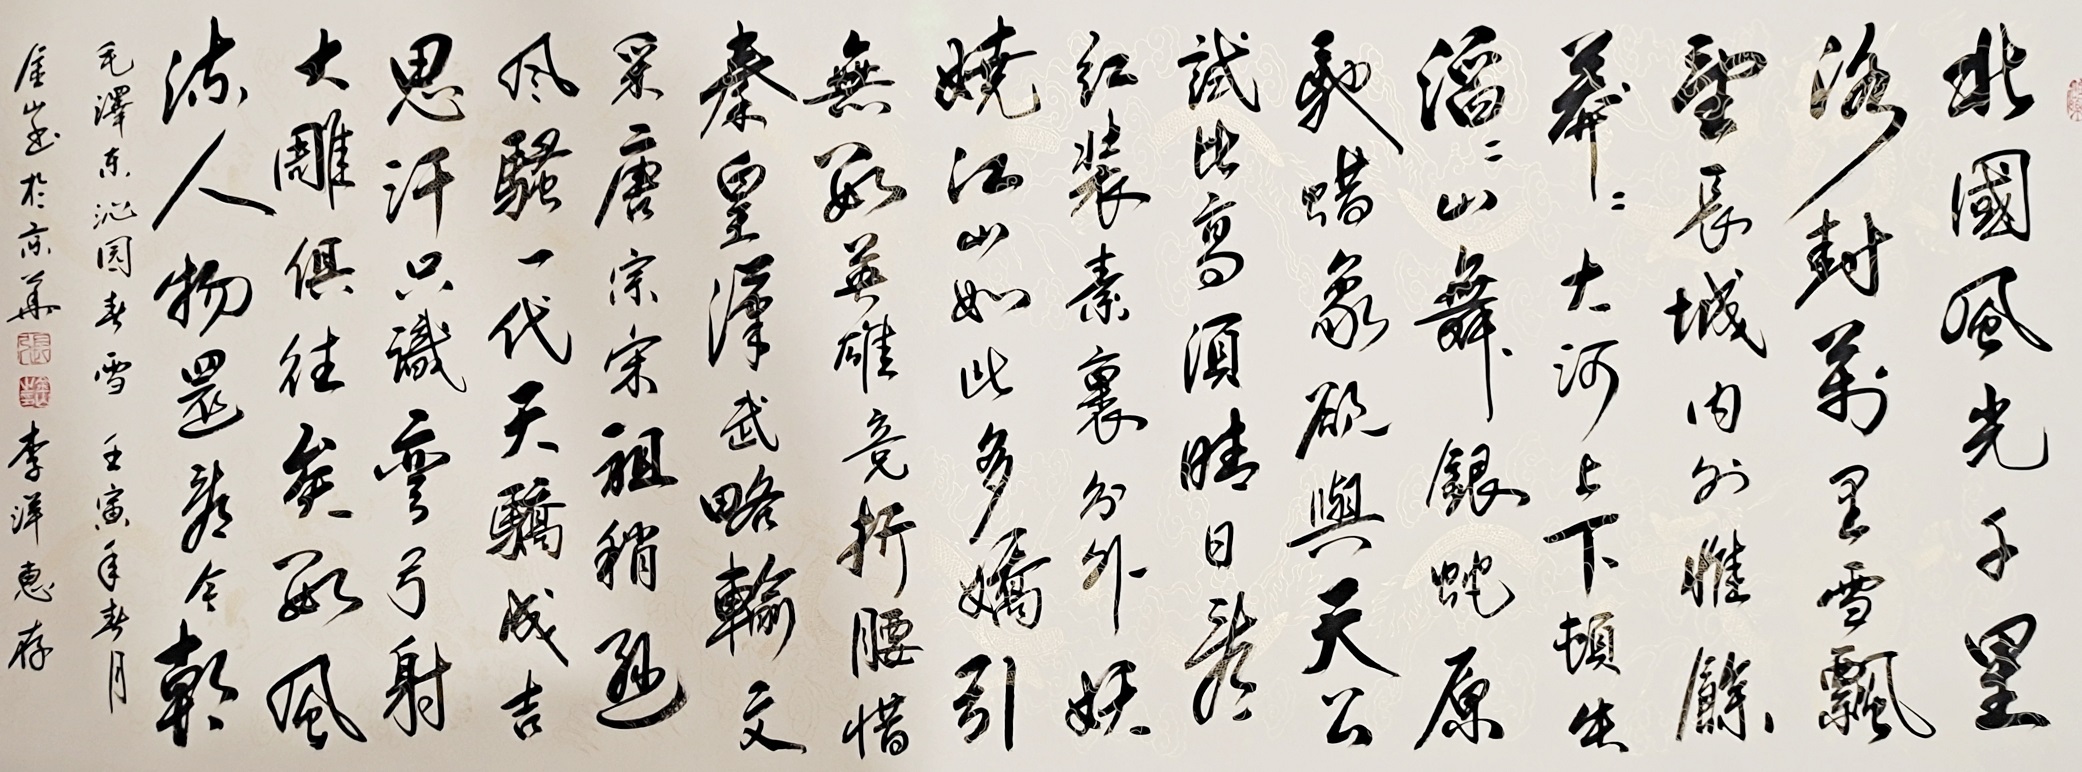 北國風光千里
冰封萬里雪飄
望長城內外惟餘
莽〻大河上下頓失
滔〻山舞銀蛇原
馳蜡象欲與天公
試比高須晴日看
紅裝素裹分外妖
嬈江山如此多嬌引
無數英雄競折腰惜
秦皇漢武略輸文
采唐宗宋祖稍遜
风騷一代天驕成吉
思汗只識彎弓射
大雕俱往矣數風
流人物還看今朝
毛澤东沁园春雪 壬寅年春月
金山書於京華 李洋惠存